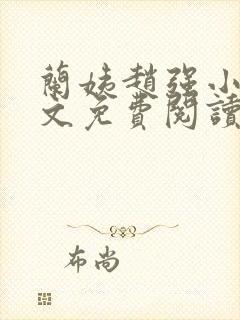 蘭姨趙強小
文免費閱讀
布尚